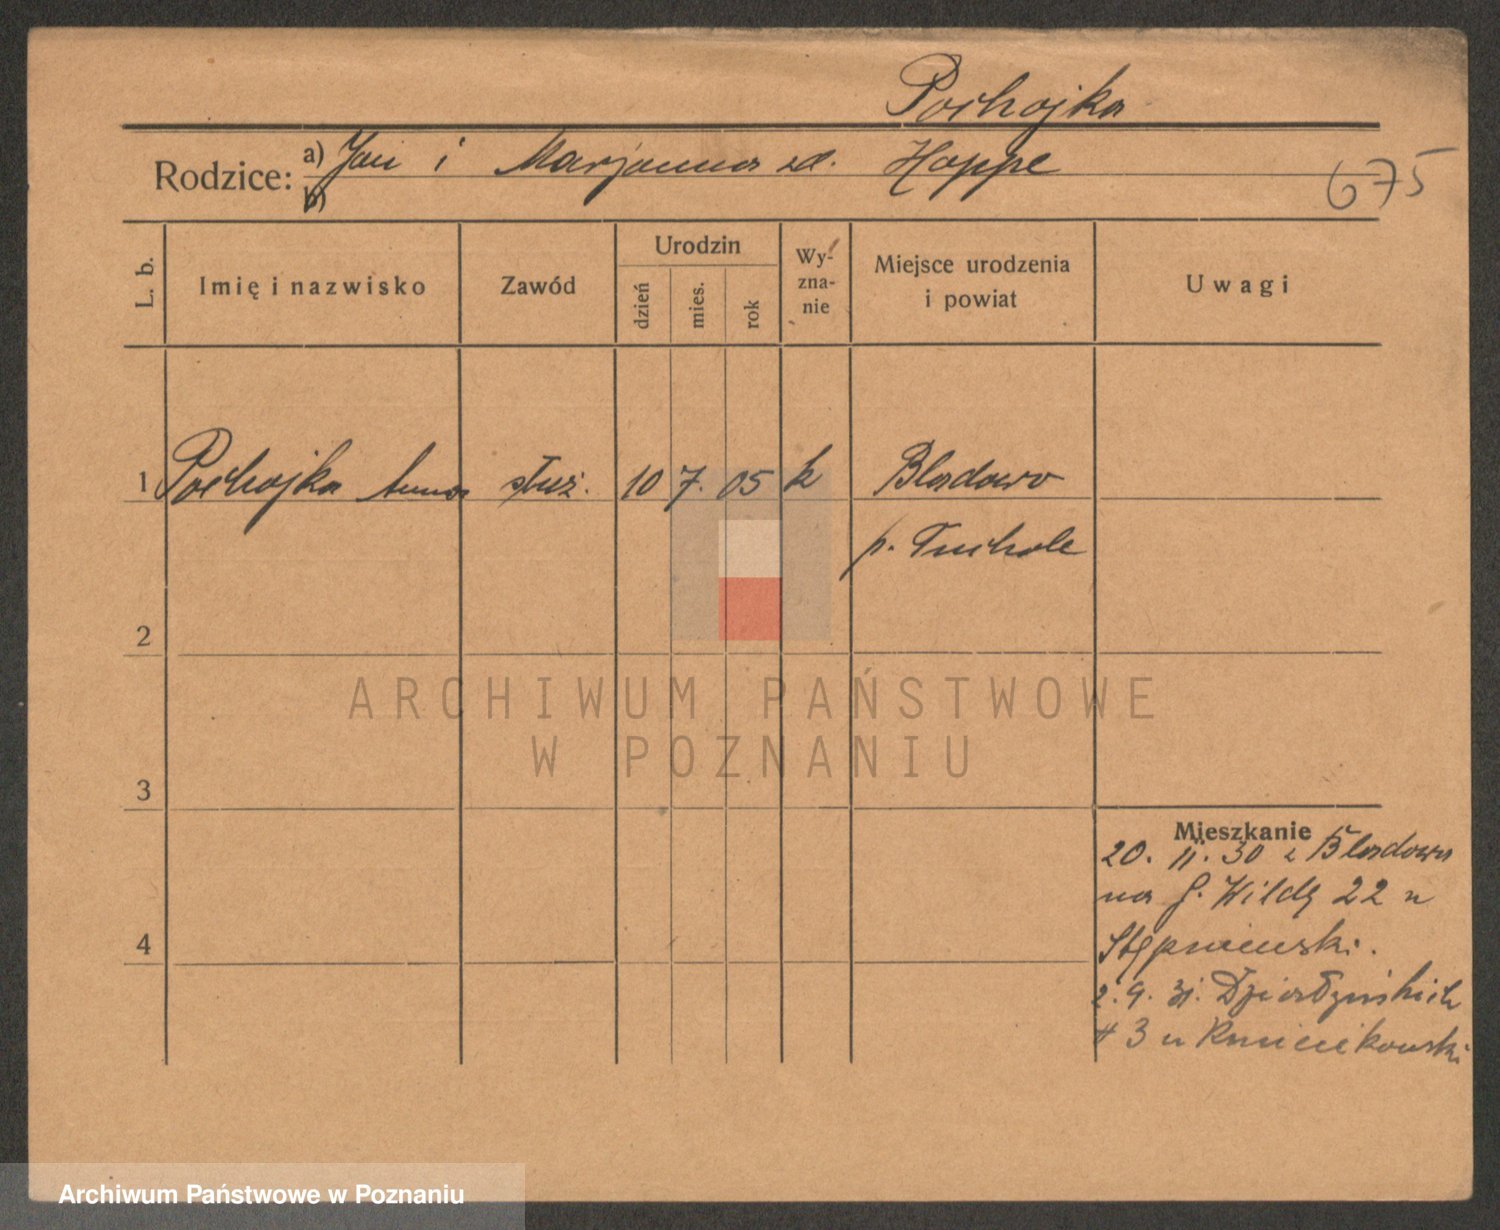 Pochojka
Rodzice: a) Jan i Marjanna zd. Hoppe
b)
675
L. b. Imię i nazwisko Zawód Urodzin dzień mies. rok Wy-zna-nie Miejsce urodzenia i powiat Uwagi
1 Pochojka Anna służ. 10 7. 05 k Bladowo
p. Tuchole
2
ARCHIWUM PAŃSTWOWE
W POZNANIU
3
Mieszkanie
20. 11. 30 z Bladowa
na G. Wildę 22 u
Stępniewski.
4
2. 9. 31. Działyńskich
3 u
Archiwum Państwowe w Poznaniu